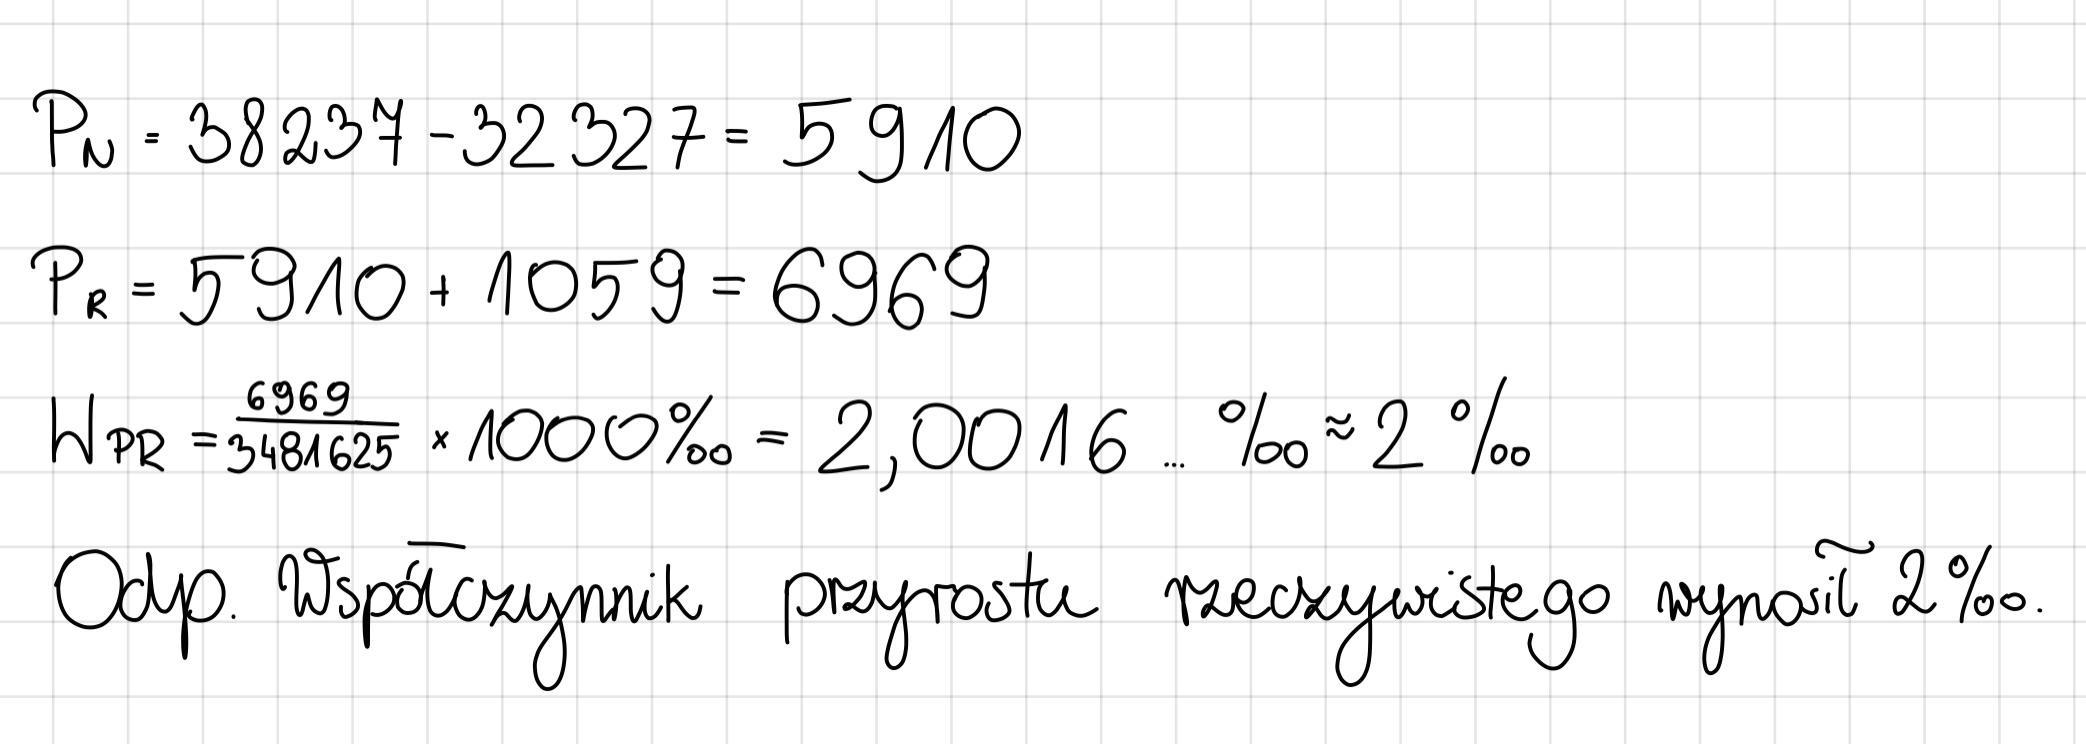 P_N = 38237 - 32327 = 5910
P_R = 5910 + 1059 = 6969
W_PR = 6969/3481625 × 1000‰ = 2,0016... ‰ ≈ 2‰
Odp. Współczynnik przyrostu rzeczywistego wynosił 2‰.